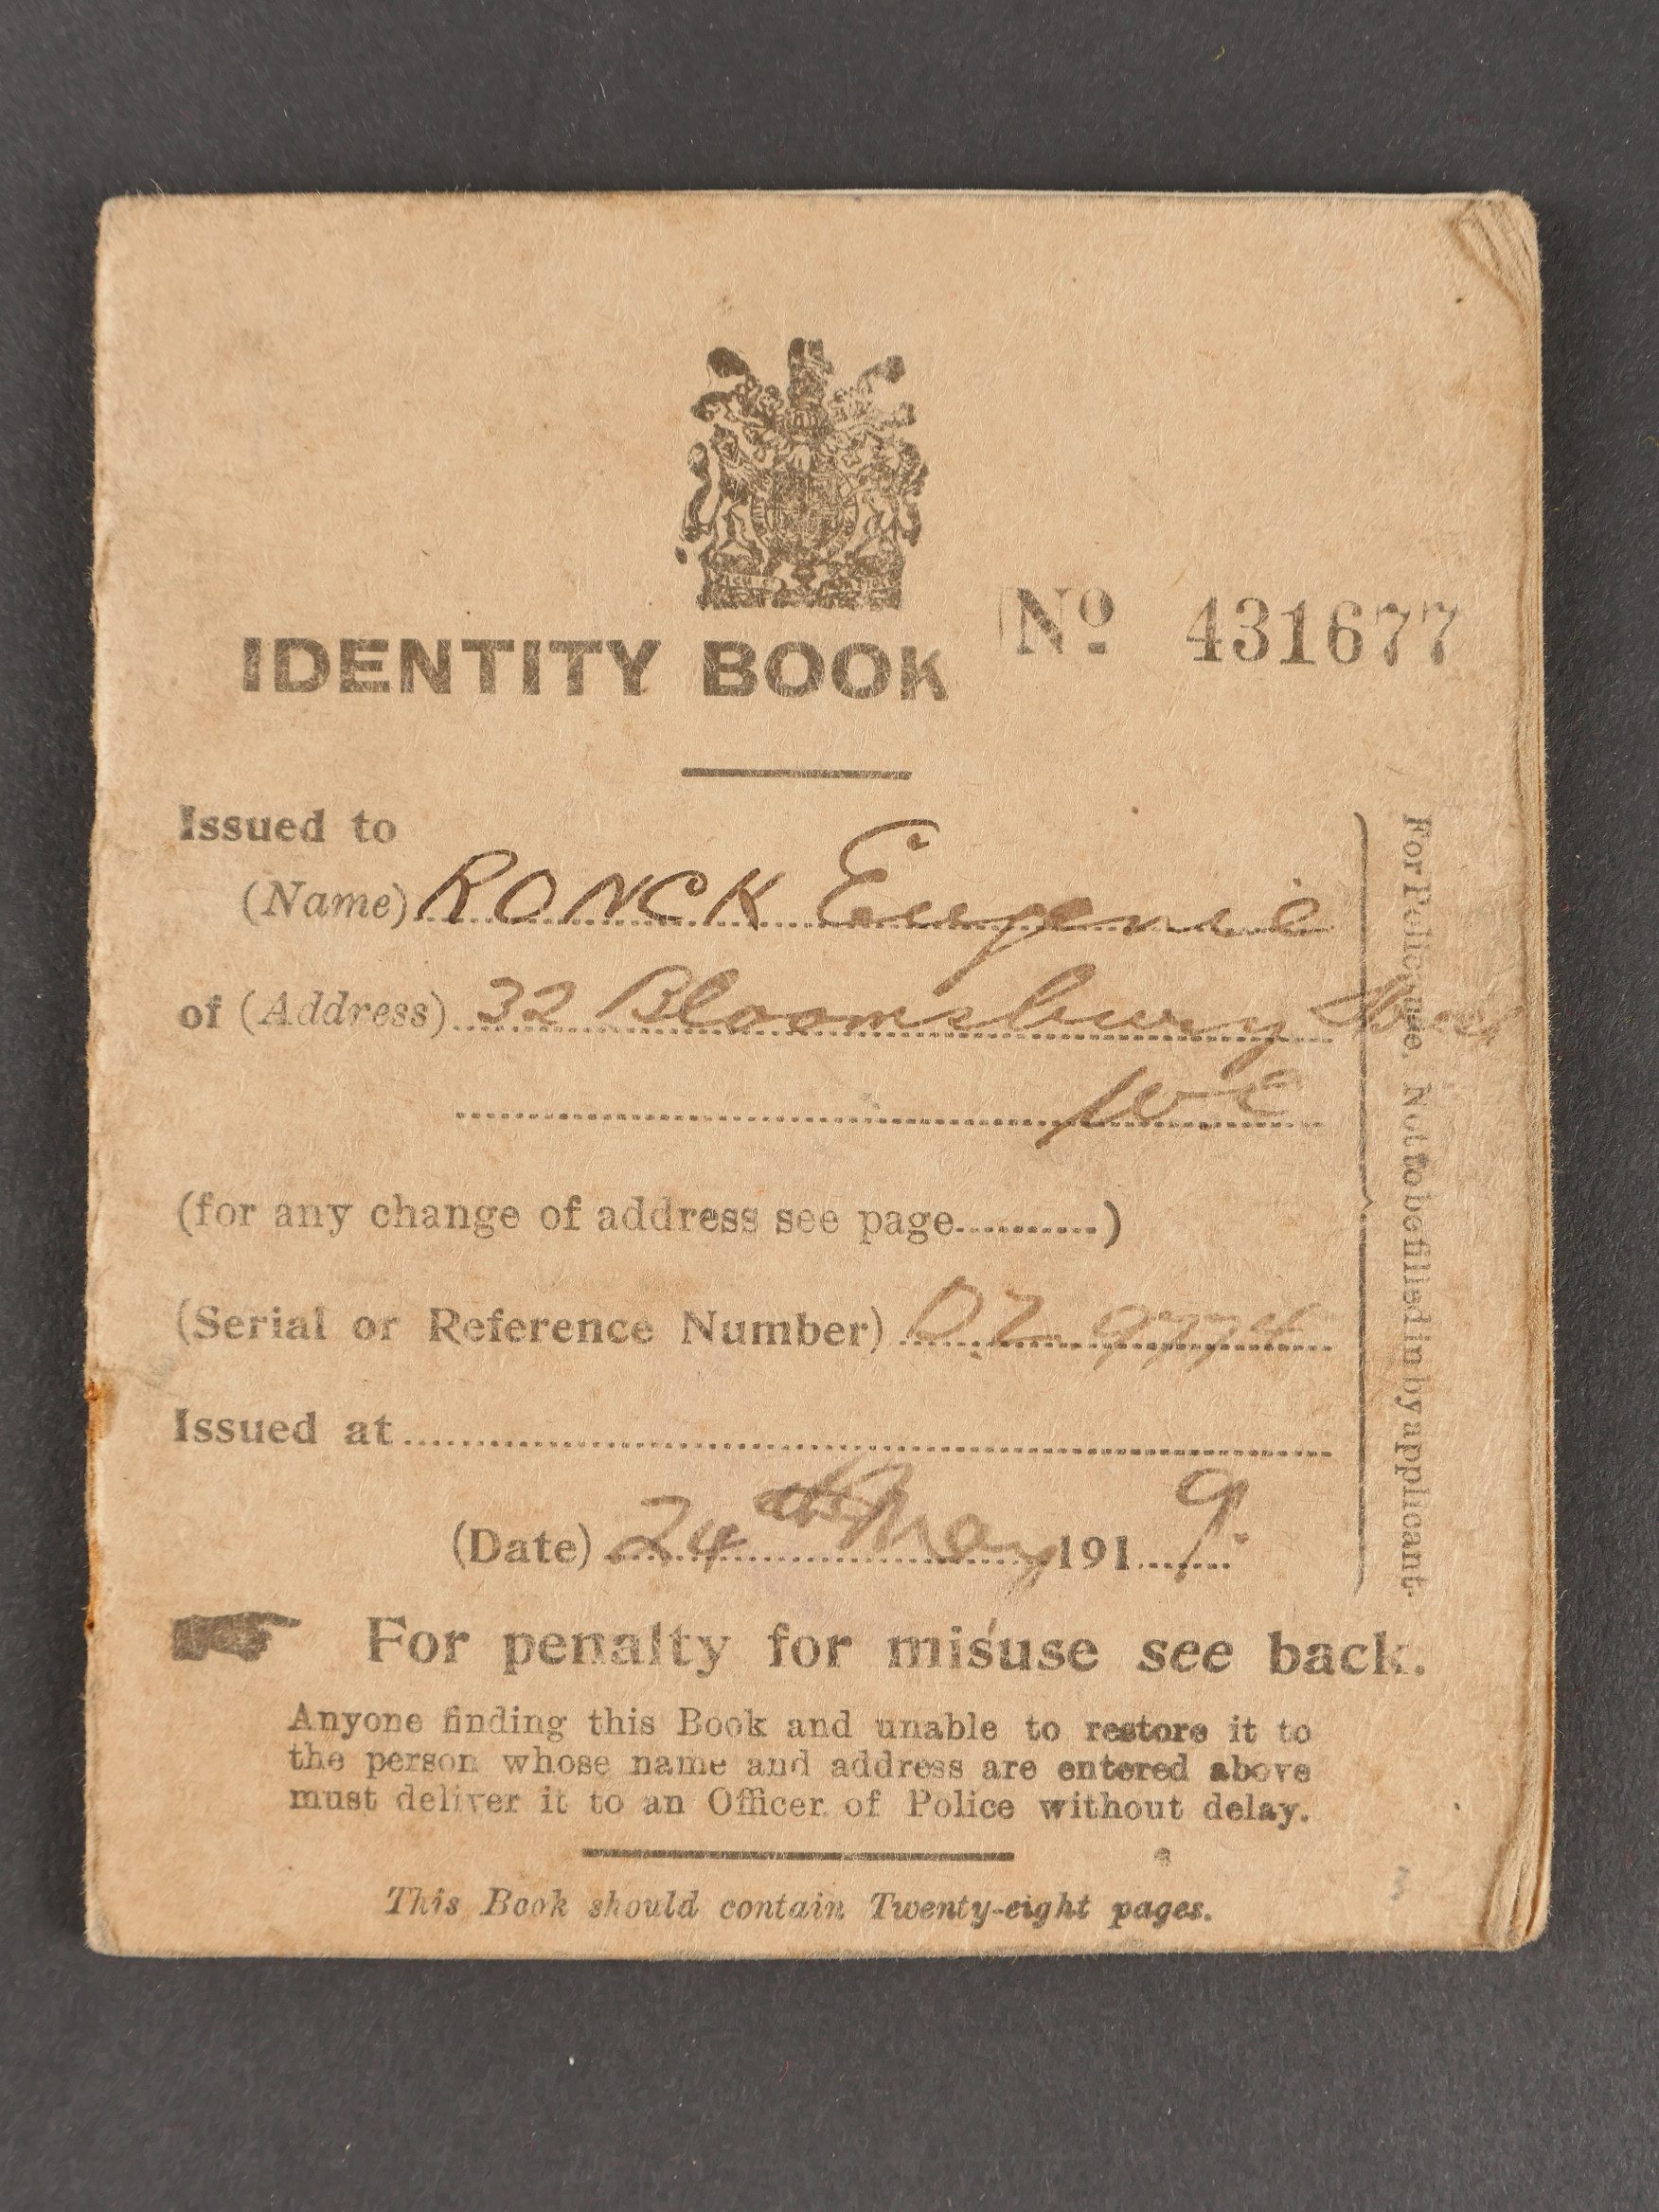 IDENTITY BOOK
Nº 431677
Issued to
(Name) RONCK Eugenie
of (Address) 32 Bloomsbury Street
WC
(for any change of address see page...........)
(Serial or Reference Number) DZ 9774
Issued at
(Date) 24th May 1919.
For Police use. Not to be filled in by applicant.
For penalty for misuse see back.
Anyone finding this Book and unable to restore it to
the person whose name and address are entered above
must deliver it to an Officer of Police without delay.
This Book should contain Twenty-eight pages.